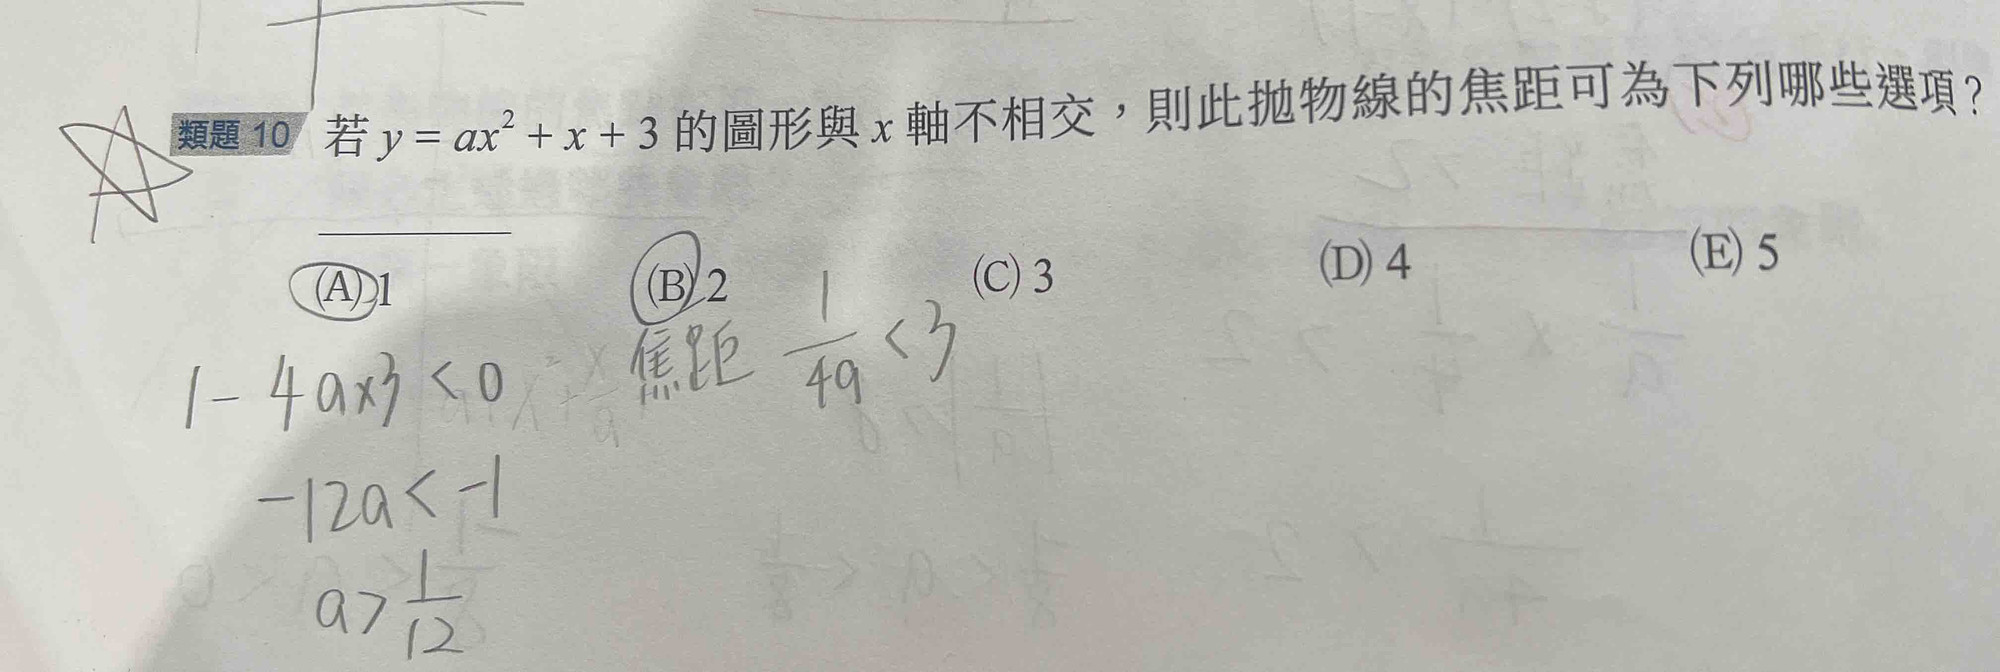 類題 10 若 y = ax² + x + 3 的圖形與 x 軸不相交，則此拋物線的焦距可為下列哪些選項？
(A) 1 (B) 2 (C) 3 (D) 4 (E) 5
1 - 4a×3 < 0 焦距 1/4a < 3
-12a < -1
a > 1/12